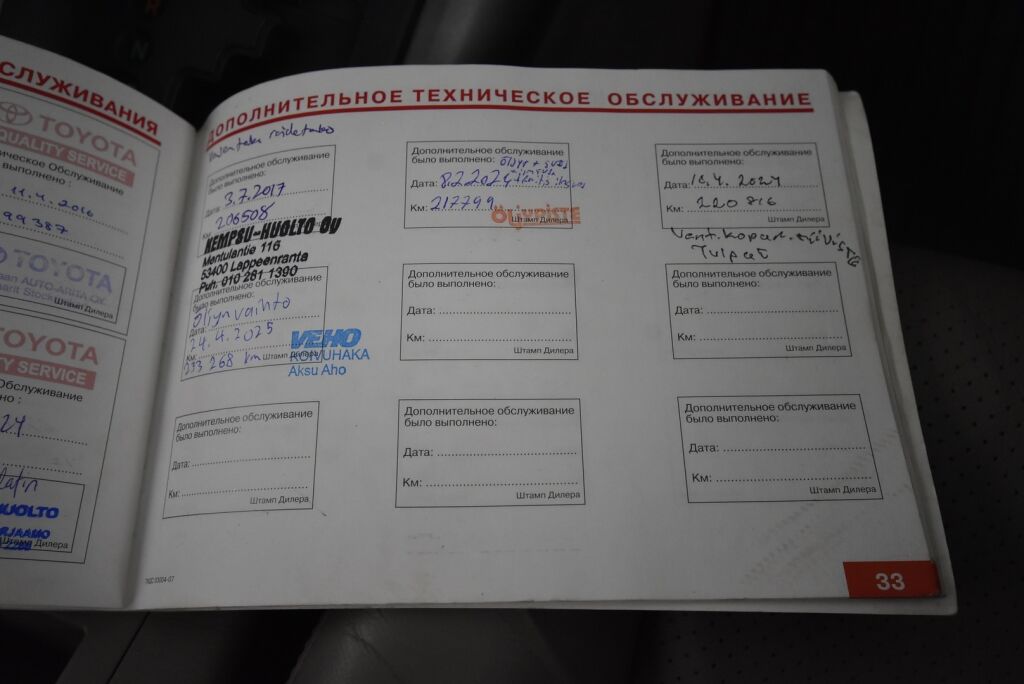 СЛУЖИВАНИЯ
TOYOTA
QUALITY SERVICE
ническое Обслуживание
выполнено:
11.4.2016
99387
TOYOTA
AUTO-ARITA OY.
Штамп Дилера
TOYOTA
Y SERVICE
Обслуживание
но:
24
HUOLTO
RJAAMO
Штамп Дилера
ДОПОЛНИТЕЛЬНОЕ ТЕХНИЧЕСКОЕ ОБСЛУЖИВАНИЕ
Дополнительное обслуживание
было выполнено:
Дата: 3.7.2017
206508
KEMPSU-HUOLTO OY
Mentulantie 116
53400 Lappeenranta
Puh. 010 281 1390
Дополнительное обслуживание
было выполнено: öljyt +
Дата: 8.2.2024
Км: 217799
Штамп Дилера
ÖLJYPISTE
Дополнительное обслуживание
было выполнено:
Дата: 18.4.2024
Км: 220816
Штамп Дилера
Vent.kopan.tiiviste
Tulpat
Дополнительное обслуживание
было выполнено:
öljyn vaihto
Дата: 24.4.2025
Км: 233 268 km
Штамп Дилера
VEHO
KONUHAKA
Aksu Aho
Дополнительное обслуживание
было выполнено:
Дата:
Км:
Штамп Дилера
Дополнительное обслуживание
было выполнено:
Дата:
Км:
Штамп Дилера
Дополнительное обслуживание
было выполнено:
Дата:
Км:
Штамп Дилера
Дополнительное обслуживание
было выполнено:
Дата:
Км:
Штамп Дилера
Дополнительное обслуживание
было выполнено:
Дата:
Км:
Штамп Дилера
33